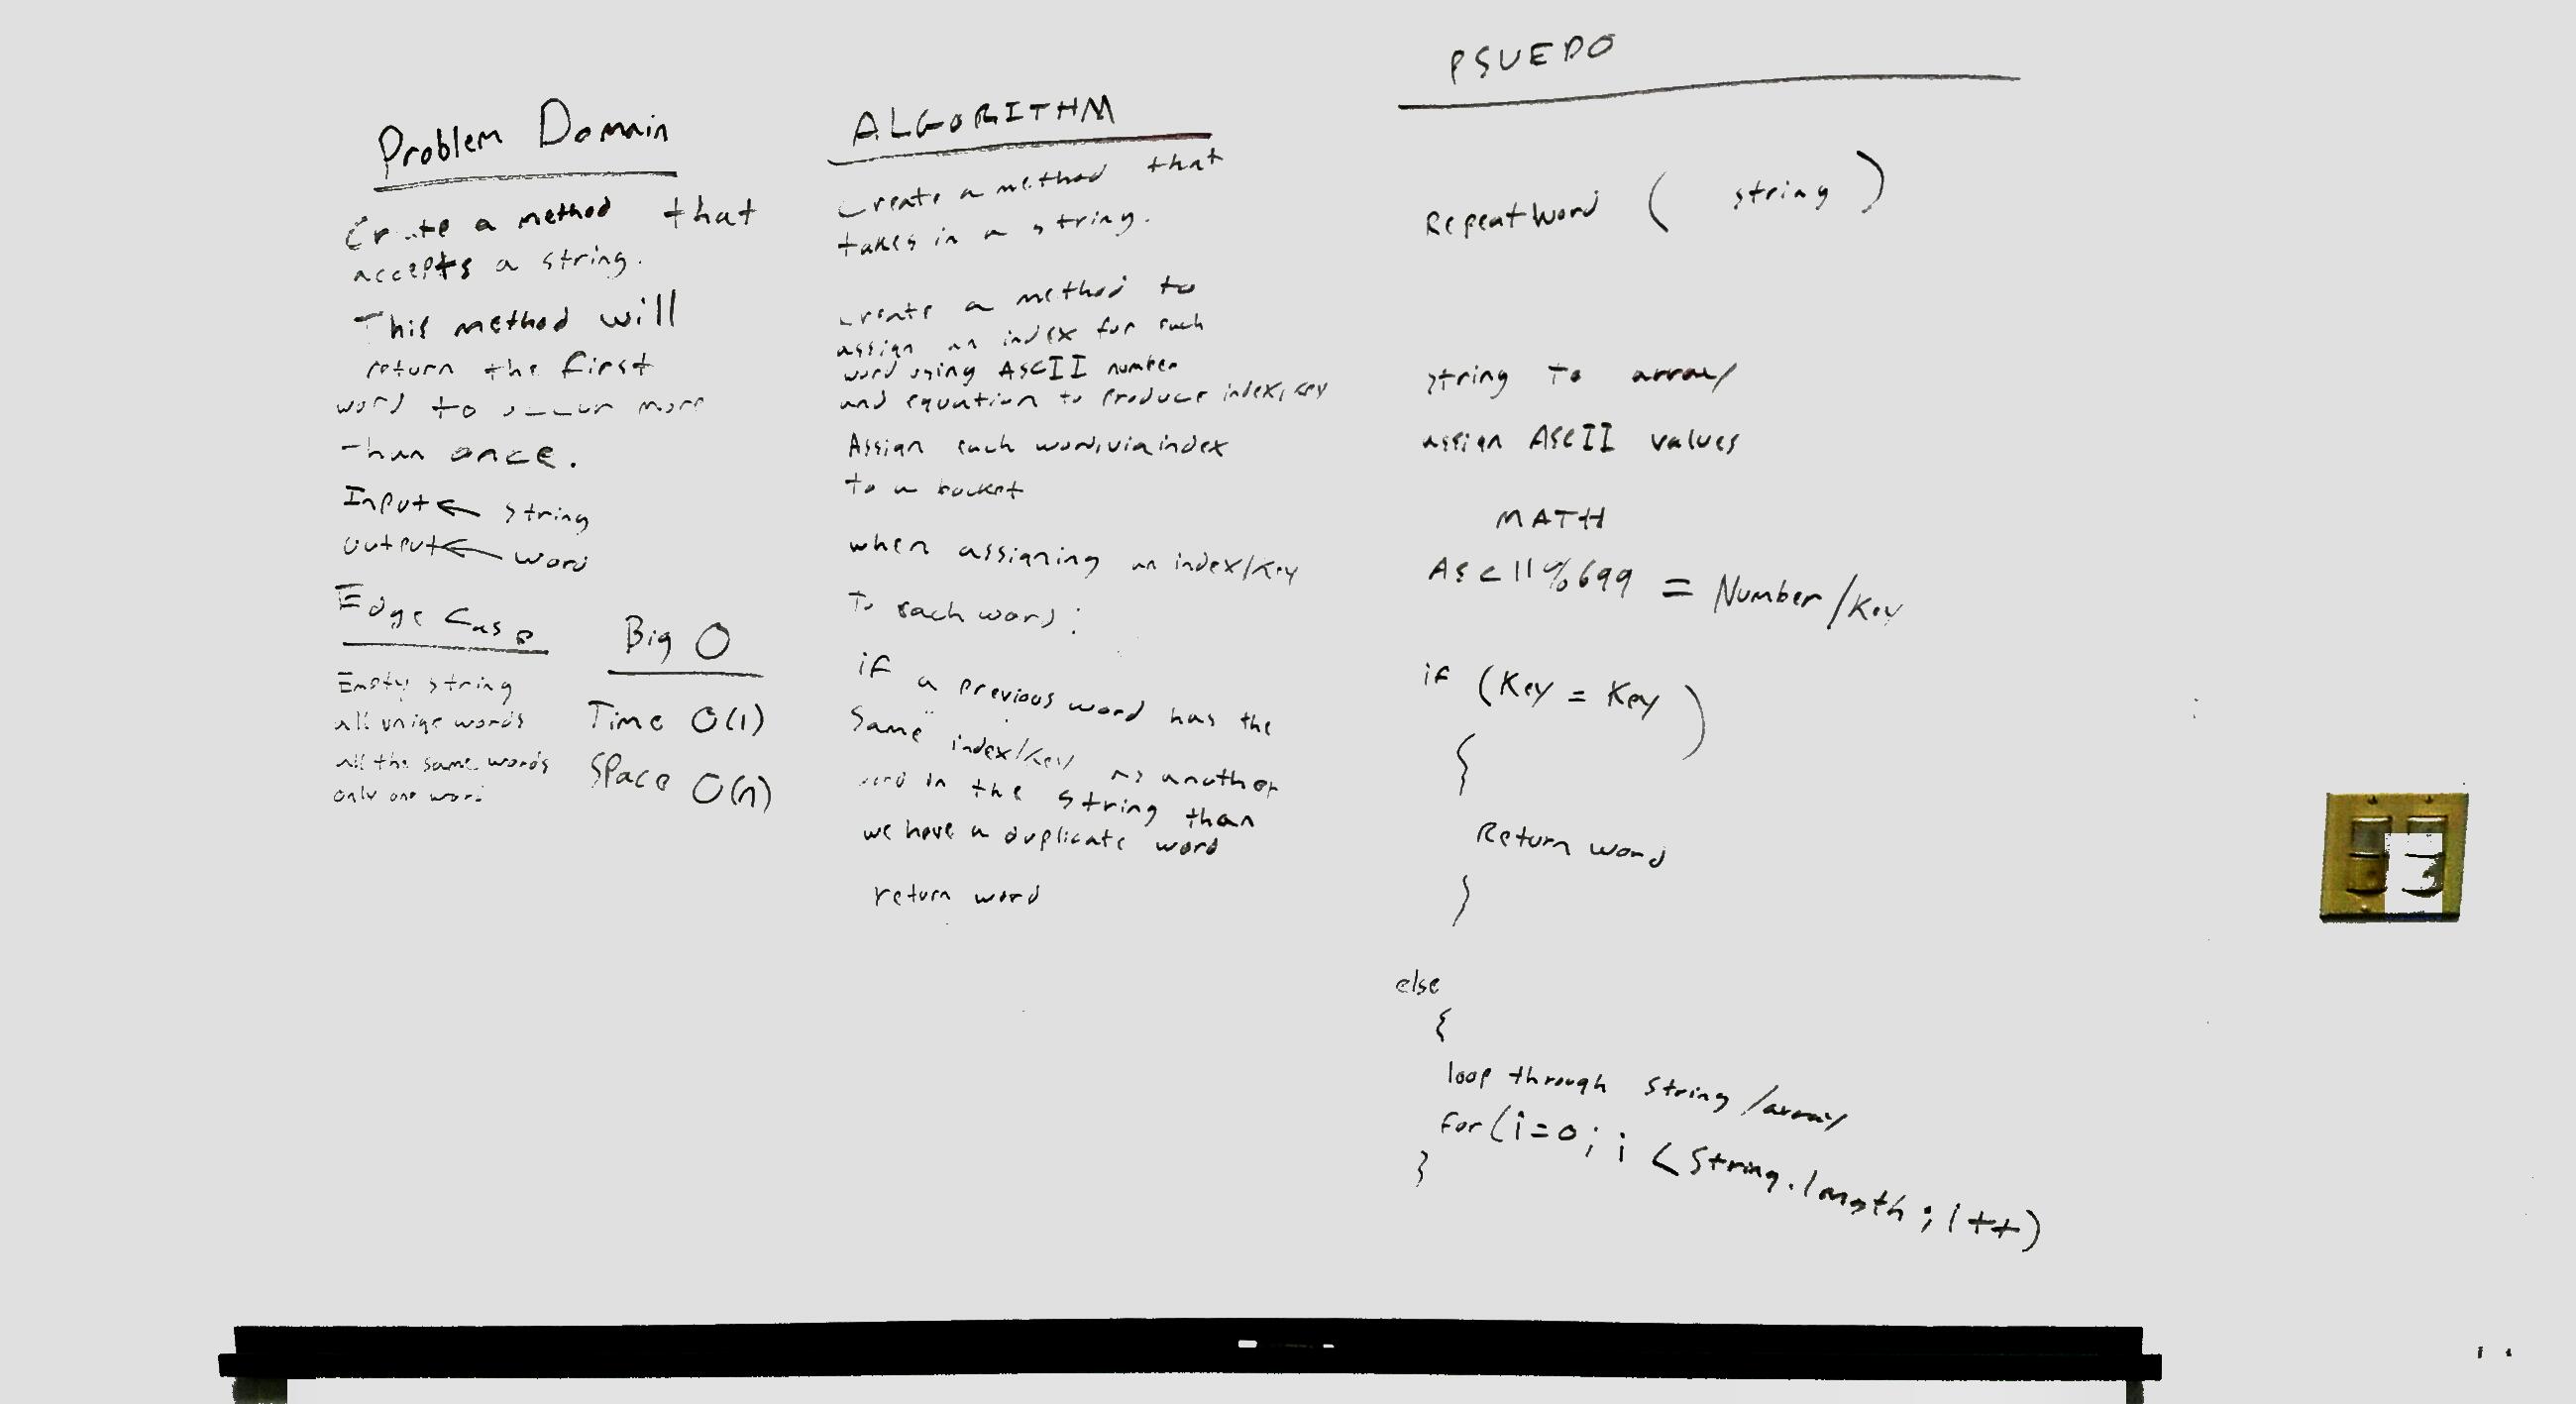 Problem Domain
Create a method that
accepts a string.
This method will
return the first
word to occur more
than once.
Input ← string
output ← word
Edge Case
Empty string
all uniqe words
all the same words
only one word
Big O
Time O(1)
Space O(n)
ALGORITHM
Create a method that
takes in a string.
create a method to
assign an index for each
word using ASCII number
and equation to produce index/key
Assign each word, via index
to a bucket
when assigning an index/key
to each word:
if a previous word has the
same index/key as another
word in the string than
we have a duplicate word
return word
PSUEDO
RepeatWord ( string )
string to array
assign ASCII values
MATH
ASCII % 699 = Number/Key
if (Key = Key)
{
Return word
}
else
{
loop through string/array
for (i=0; i < String.length; i++)
}